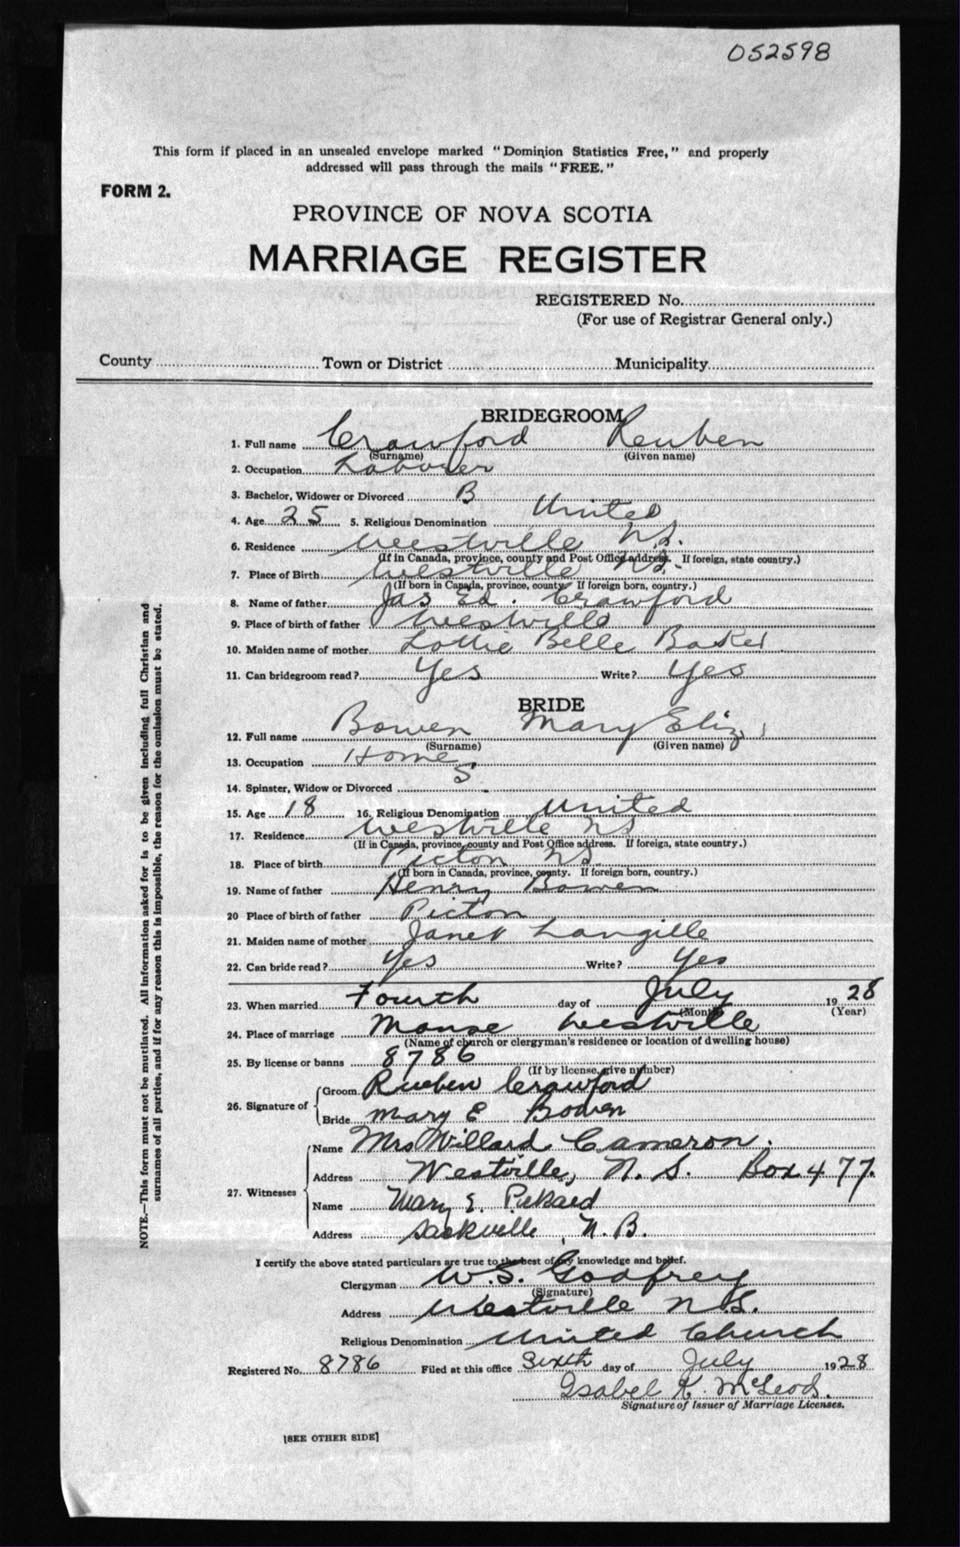 052598
This form if placed in an unsealed envelope marked "Dominion Statistics Free," and properly
addressed will pass through the mails "FREE."
FORM 2.
PROVINCE OF NOVA SCOTIA
MARRIAGE REGISTER
REGISTERED No.
(For use of Registrar General only.)
County Town or District Municipality
BRIDEGROOM
1. Full name Crawford Reuben
(Surname) (Given name)
2. Occupation Laborer
3. Bachelor, Widower or Divorced B
4. Age 25 5. Religious Denomination United
6. Residence Westville N.S.
(If in Canada, province, county and Post Office address. If foreign, state country.)
7. Place of Birth Westville N.S.
(If born in Canada, province, county. If foreign born, country.)
8. Name of father Jas Ed. Crawford
9. Place of birth of father Westville
10. Maiden name of mother Lottie Belle Baker
11. Can bridegroom read? Yes Write? Yes
BRIDE
12. Full name Bowen Mary Eliz
(Surname) (Given name)
13. Occupation Home
14. Spinster, Widow or Divorced S.
15. Age 18 16. Religious Denomination United
17. Residence Westville NS
(If in Canada, province, county and Post Office address. If foreign, state country.)
18. Place of birth Picton NS
(If born in Canada, province, county. If foreign born, country.)
19. Name of father Henry Bowen
20 Place of birth of father Picton
21. Maiden name of mother Janet Langille
22. Can bride read? Yes Write? Yes
23. When married Fourth day of July 1928
(Month) (Year)
24. Place of marriage Manse Westville
(Name of church or clergyman's residence or location of dwelling house)
25. By license or banns 8786
(If by license, give number)
26. Signature of Groom Reuben Crawford
Bride Mary E Bowen
27. Witnesses Name Mrs Willard Cameron.
Address Westville, N. S. Box 477.
Name Mary E. Pickard
Address Sackville, N. B.
I certify the above stated particulars are true to the best of my knowledge and belief.
Clergyman W. S. Godfrey
(Signature)
Address Westville N.S.
Religious Denomination United Church
Registered No. 8786 Filed at this office Sixth day of July 1928
Isabel K. McLeod.
Signature of Issuer of Marriage Licenses.
[SEE OTHER SIDE]
NOTE.—This form must not be mutilated. All information asked for is to be given including full Christian and
surnames of all parties, and if for any reason this is impossible, the reason for the omission must be stated.